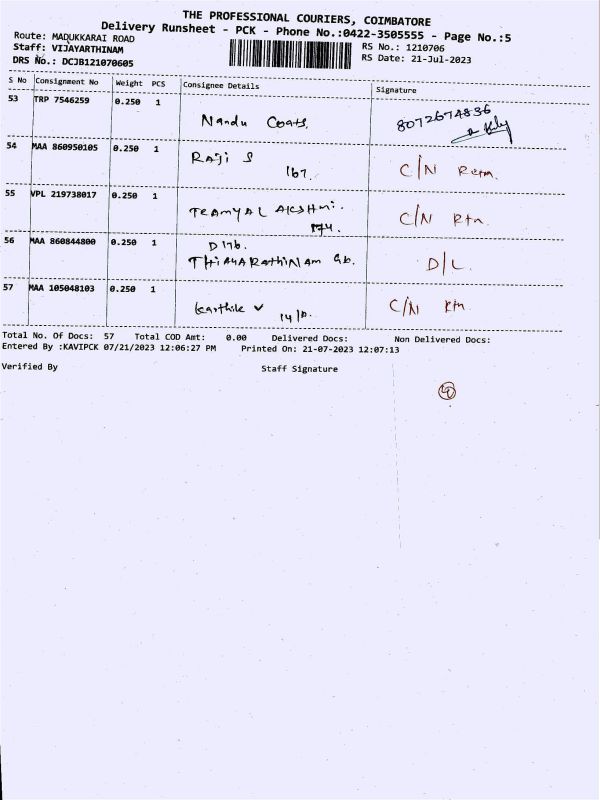 THE PROFESSIONAL COURIERS, COIMBATORE
Delivery Runsheet - PCK - Phone No.:0422-3505555 - Page No.:5
Route: MADUKKARAI ROAD
RS No.: 1210706
Staff: VIJAYARTHINAM
RS Date: 21-Jul-2023
DRS No.: DCJB121070605
S No Consignment No Weight PCS Consignee Details Signature
53 TRP 7546259 0.250 1
Nandu Coats. 8072674836
54 MAA 860950105 0.250 1 Raji S
167. C/N Retn.
55 VPL 219738017 0.250 1
174. C/N Rtn.
56 MAA 860844800 0.250 1 D/L
57 MAA 105048103 0.250 1
Karthik V 14/ C/N Rtn
Total No. Of Docs: 57 Total COD Amt: 0.00 Delivered Docs: Non Delivered Docs:
Entered By :KAVIPCK 07/21/2023 12:06:27 PM Printed On: 21-07-2023 12:07:13
Verified By Staff Signature